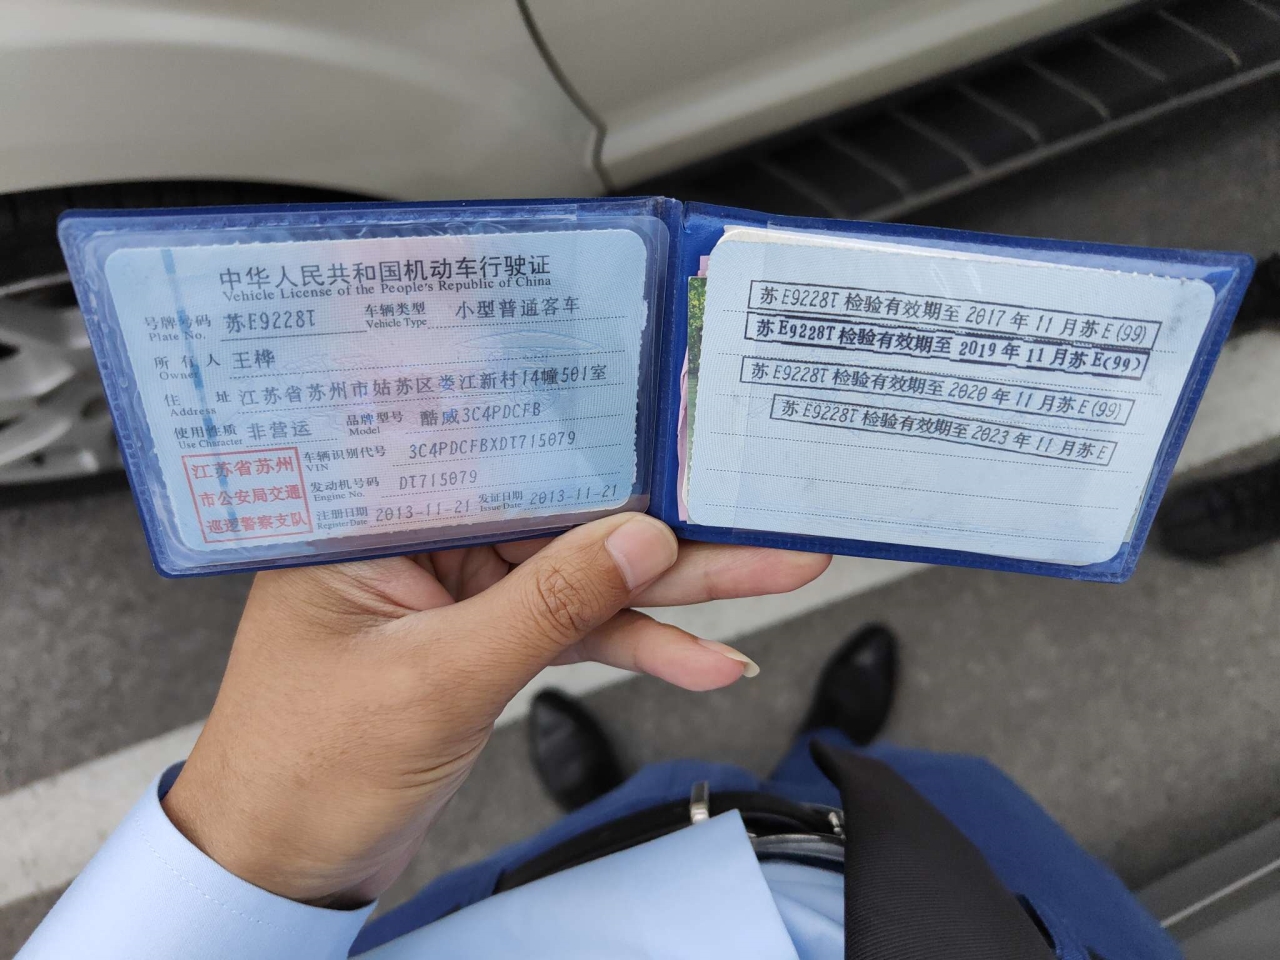 中华人民共和国机动车行驶证
Vehicle License of the People's Republic of China
号牌号码 苏E9228T 车辆类型 小型普通客车
Plate No. Vehicle Type
所有人 王桦
Owner
住 址 江苏省苏州市姑苏区娄江新村14幢501室
Address
使用性质 非营运 品牌型号 酷威3C4PDCFB
Use Character Model
江苏省苏州
市公安局交通
巡逻警察支队
车辆识别代号 3C4PDCFBXDT715079
VIN
发动机号码 DT715079
Engine No.
注册日期 2013-11-21 发证日期 2013-11-21
Register Date Issue Date
苏E9228T 检验有效期至 2017 年 11 月苏E(99)
苏E9228T 检验有效期至 2019 年 11 月苏E(99)
苏E9228T 检验有效期至 2020 年 11 月苏E(99)
苏E9228T 检验有效期至 2023 年 11 月苏E